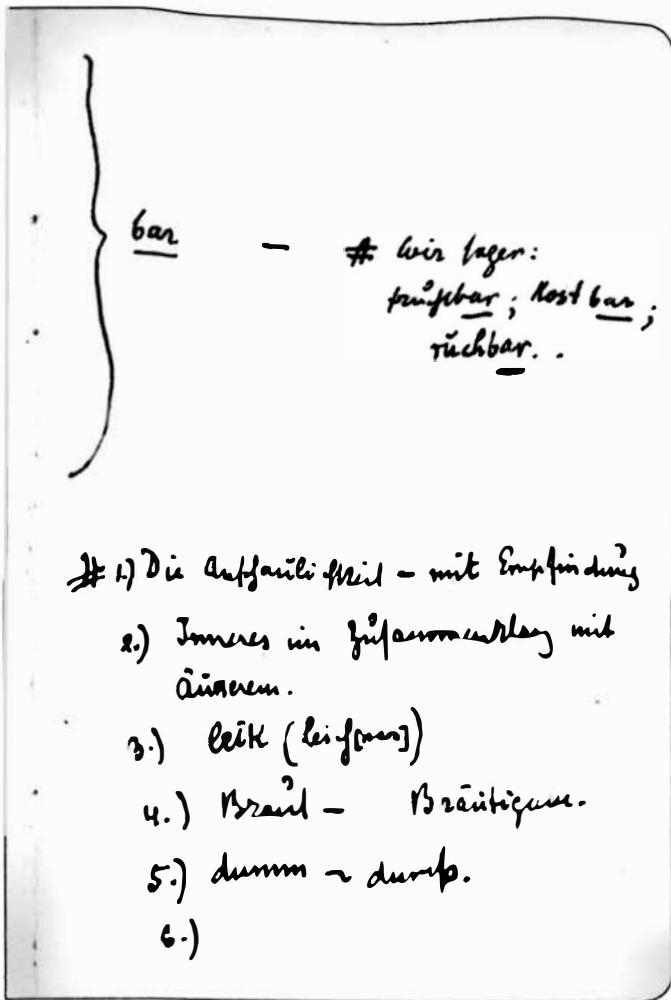 bar – # Wir sagen:
fruchtbar; kostbar;
ruchbar. .
# 1.) Die Anschaulichkeit – mit Empfindung
2.) Inneres im Zusammenklang mit
äusserem.
3.) leik (leich[nam])
4.) Braut – Bräutigam.
5.) dumm ~ dumpf.
6.)